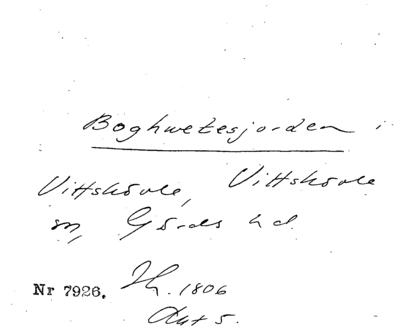 Boghwetesjorden i
Vittskövle, Vittskövle
sn, Gärds hd.
Nr 7926. Th. 1806
Akt 5.